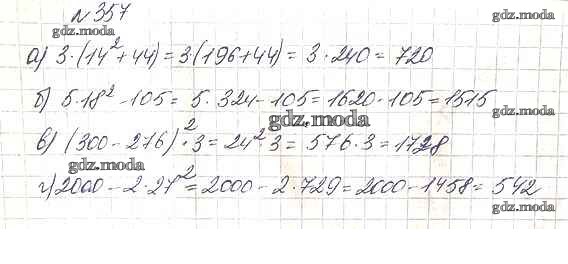 №357
gdz.moda
gdz.moda
а) 3·(14²+44)=3·(196+44)=3·240=720
gdz.moda
б) 5·18²-105=5·324-105=1620-105=1515
gdz.moda
gdz.moda
в) (300-276)²·3=24²·3=576·3=1728
gdz.moda
gdz.moda
г) 2000-2·27²=2000-2·729=2000-1458=542
gdz.moda